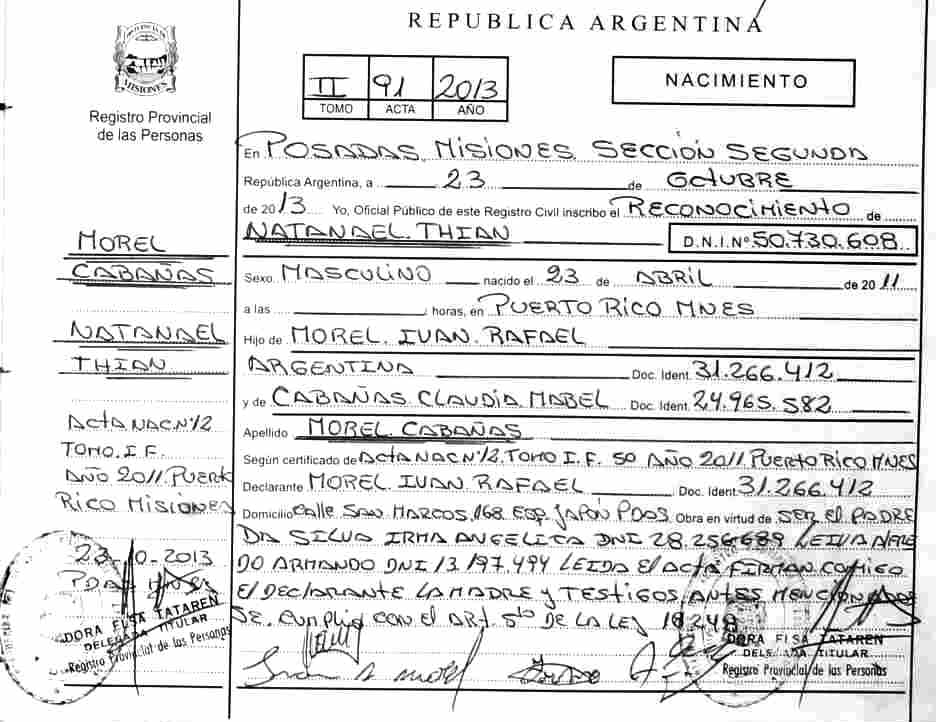 REPUBLICA ARGENTINA
PROVINCIA DE
MISIONES
Registro Provincial
de las Personas
II 91 2013
TOMO ACTA AÑO
NACIMIENTO
En POSADAS, MISIONES, SECCIÓN SEGUNDA
República Argentina, a 23 de OCTUBRE
de 2013 Yo, Oficial Público de este Registro Civil inscribo el RECONOCIMIENTO de
NATANAEL THIAN D.N.I.Nº 50.730.608
Sexo MASCULINO nacido el 23 de ABRIL de 2011
a las horas, en PUERTO RICO MNES
Hijo de MOREL. IVAN. RAFAEL
ARGENTINA Doc. Ident. 31.266.412
y de CABAÑAS. CLAUDIA. MABEL Doc. Ident. 29.965.582
Apellido MOREL. CABAÑAS
Según certificado de ACTA NAC Nº12. TOMO I.F. 50 AÑO 2011. PUERTO RICO MNES
Declarante MOREL. IVAN. RAFAEL Doc. Ident. 31.266.412
Domicilio CALLE SAN MARCOS. 168 ESQ. JAPÓN PDAS. Obra en virtud de SER EL PADRE
DA SILVA IRMA ANGELICA DNI 28.256.689 LEIVA ALFRE
DO ARMANDO DNI 13.197.499 LEIDA El ACTA FIRMAN COMIGO
El DECLARANTE LA MADRE y TESTIGOS ANTES MENCIONADOS
SE. CUMPLIO CON El ART. 5to DE LA LEY 18.248
MOREL
CABAÑAS
NATANAEL
THIAN
ACTA NAC Nº12
TOMO. I. F.
AÑO 2011. PUERTO
RICO MISIONES
23-10.2013
DORA ELSA TATAREN
DELEGADA TITULAR
Registro Provincial de las Personas
DORA ELSA TATAREN
DELEGADA TITULAR
Registro Provincial de las Personas